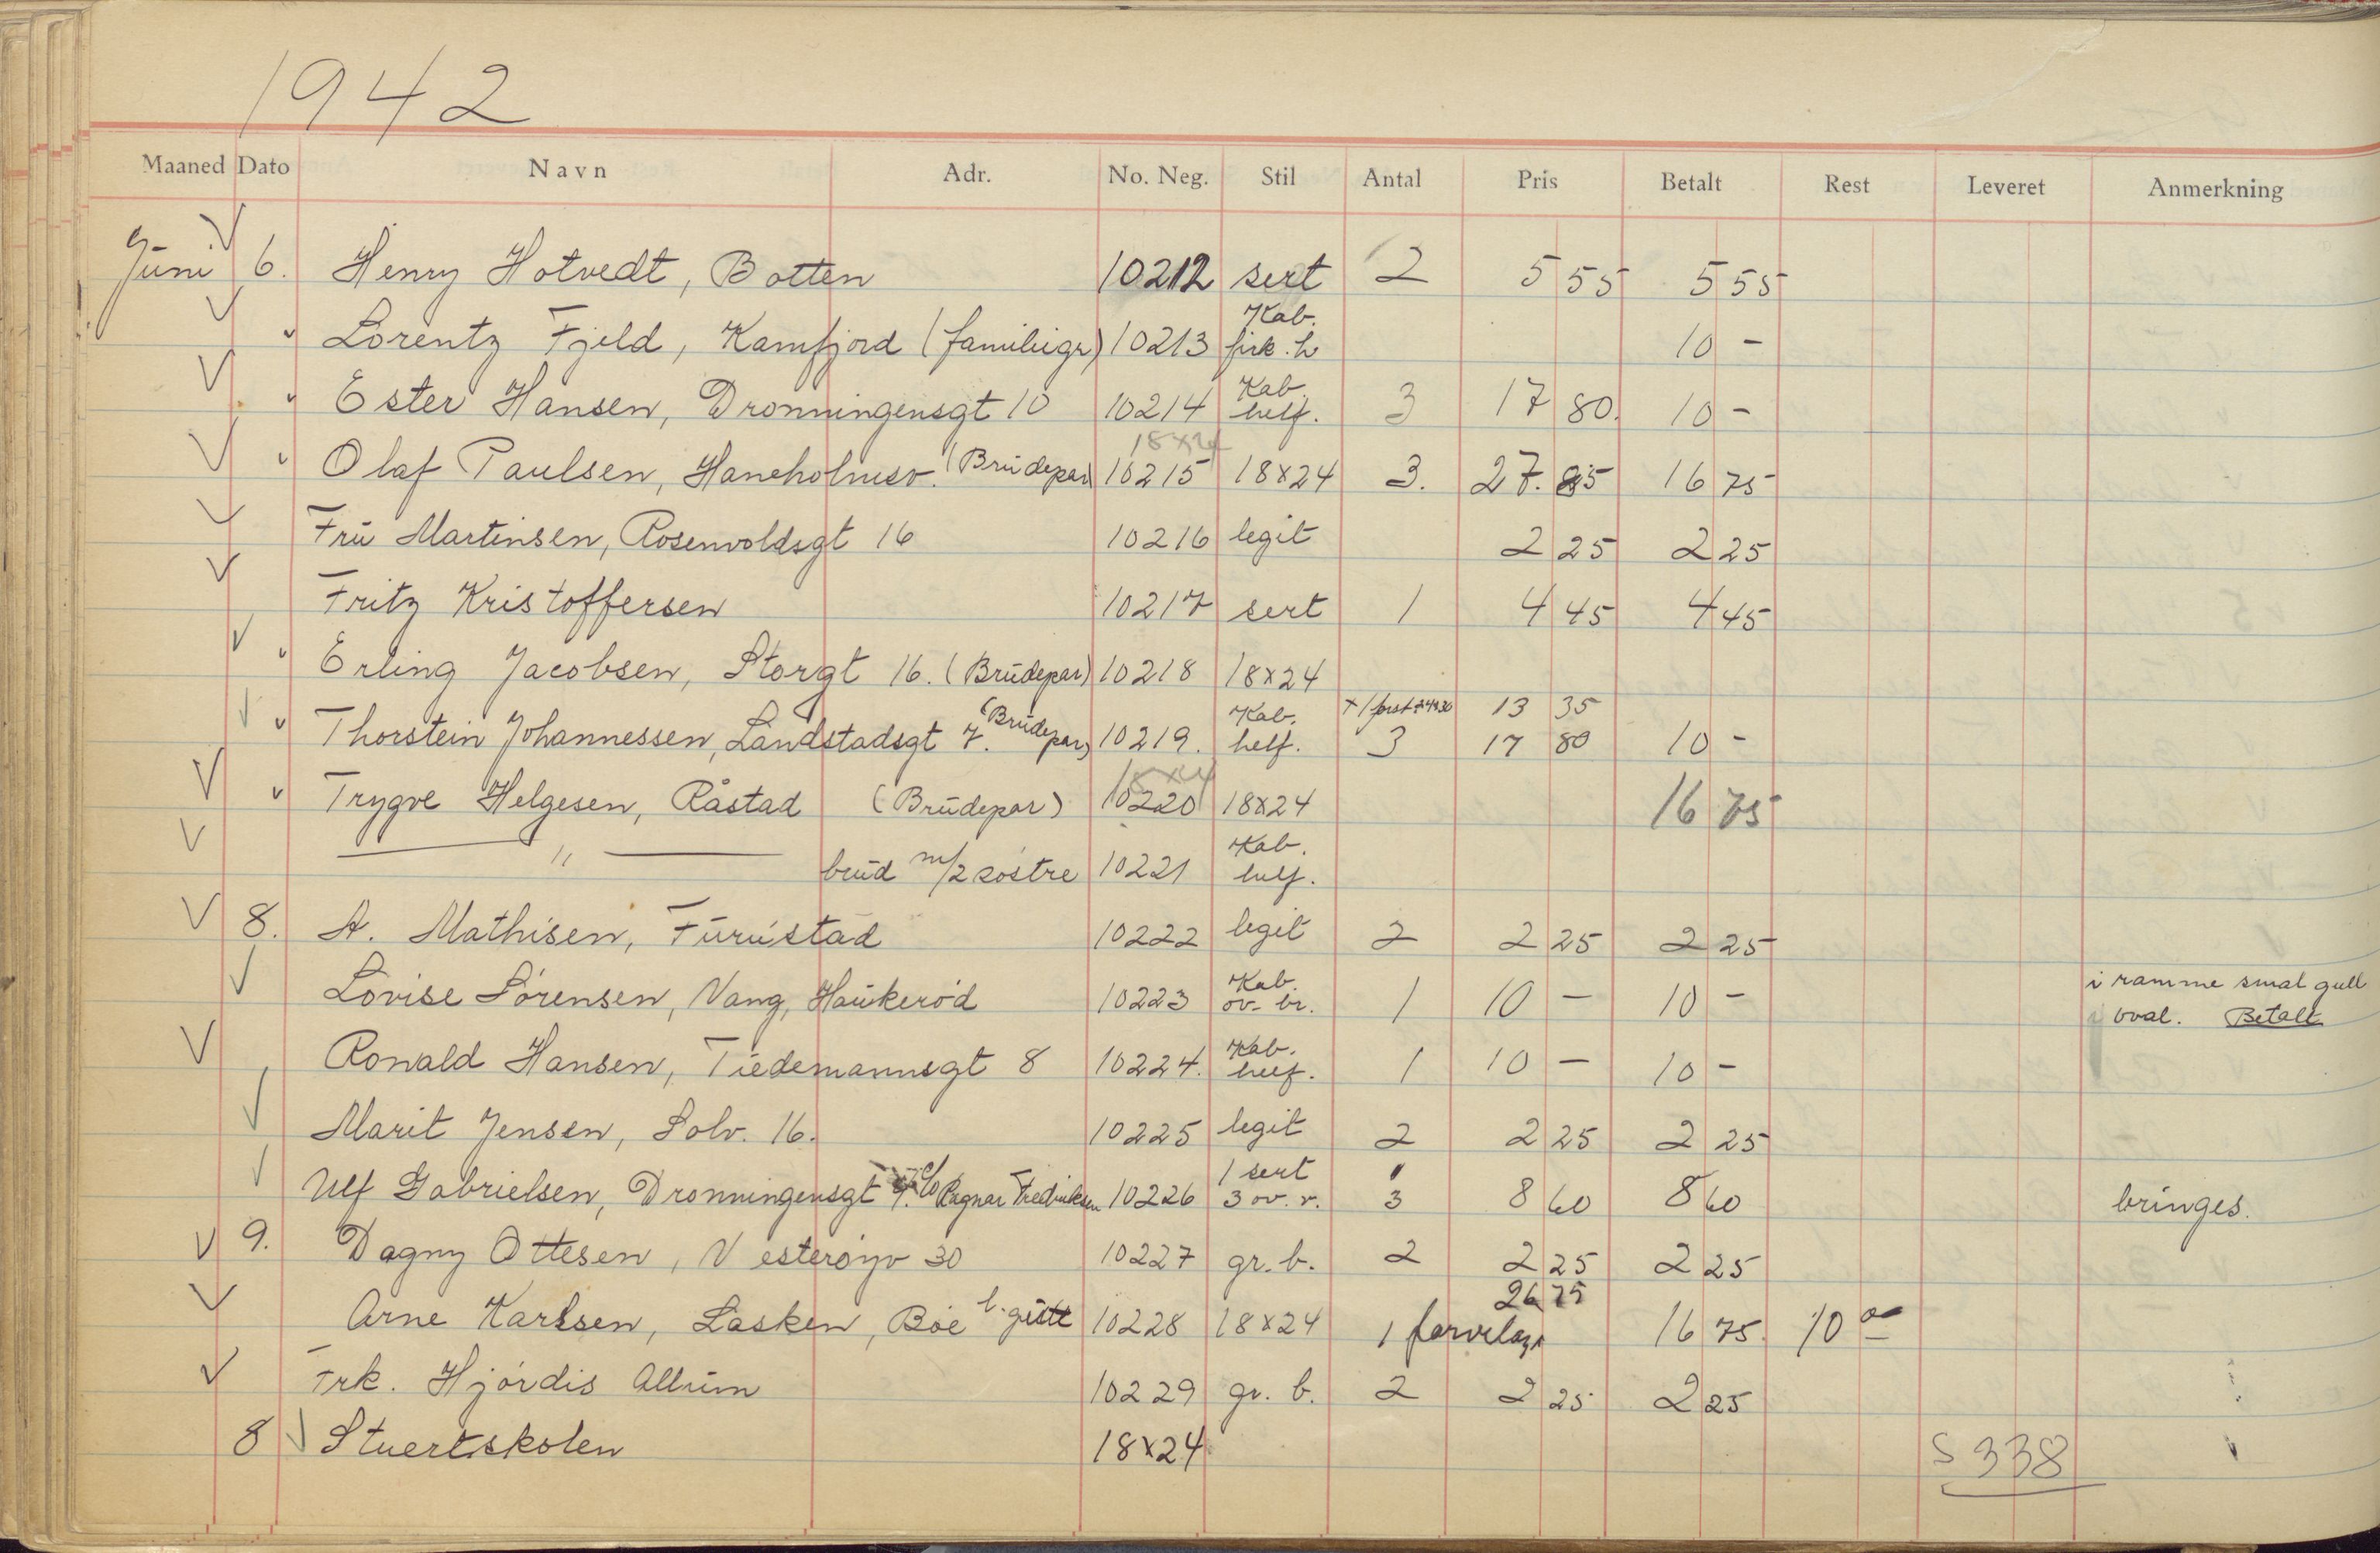 1942
Maaned Dato Navn Adr. No. Neg. Stil Antal Pris Betalt Rest Leveret Anmerkning
Juni 6. Henry Hotvedt, Botten 10212 sert 2 5 55 5 55
" Lorentz Fjeld, Kamfjord (familiegr) 10213 Kab. firk. h 10 -
" Ester Hansen, Dronningensgt 10 10214 Kab. helf. 3 17 80. 10 -
18x24
" Olaf Paulsen, Haneholmsv. (Brudepar) 10215 18x24 3. 27. 85 16 75
Fru Martinsen, Rosenvoldsgt 16 10216 legit 2 25 2 25
Fritz Kristoffersen 10217 sert 1 4 45 4 45
" Erling Jacobsen, Storgt 16. (Brudepar) 10218 18x24
13 35
" Thorstein Johannessen, Landstadsgt 7. (Brudepar) 10219. Kab. helf. 3 17 80 10 -
18x24
" Trygve Helgesen, Råstad (Brudepar) 10220 18x24 16 75
" brud m/2 søstre 10221 Kab. helf.
8. A. Mathisen, Furustad 10222 legit 2 2 25 2 25
Lovise Sørensen, Vang, Haukerød 10223 Kab. ov. br. 1 10 - 10 - i ramme smal gull
oval. Betalt
Ronald Hansen, Tiedemannsgt 8 10224. Kab. helf. 1 10 - 10 -
Marit Jensen, Solv. 16. 10225 legit 2 2 25 2 25
1 sert 1
Ulf Gabrielsen, Dronningensgt c/o Ragnar Fredriksen 10226 3 ov. v. 3 8 60 8 60 bringes.
9. Dagny Ottesen, Vesterøyv 30 10227 gr. b. 2 2 25 2 25
26 75
Arne Karlsen, Lasken, Bøe l. gutt 10228 18x24 1 farvelagt 16 75. 10 00
Frk. Hjørdis Allum 10229 gr. b. 2 2 25 2 25
8 Stuertskolen 18x24 S 338